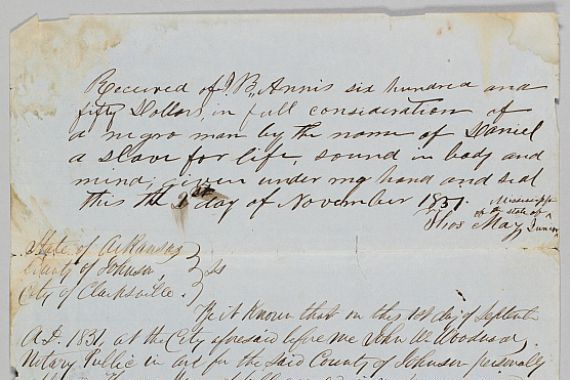 Received of J. B. Annis six hundred and
fifty Dollars, in full consideration of
a negro man by the name of Daniel
a slave for life, sound in body and
mind; given under my hand and seal
this the 1st day of November 1851.
of the state of Mississippi
Thos May, Junior
State of Arkansas
County of Johnson
City of Clarksville.
} ss
Be it Known that on this 1st day of
A.D. 1851, at the City aforesaid before me John W. Woodward
Notary Public in and for the said County of Johnson personally